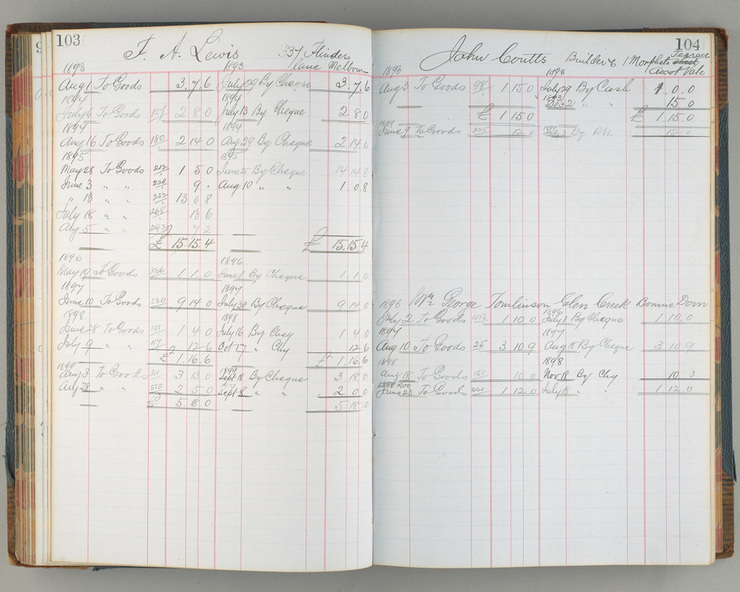 103
F. A. Lewis 337 Flinders
Lane Melbourne
1893 1893
Aug 1 To Goods 3.7.6 July 29 By Cheque 3.7.6
1894 1894
July To Goods 2 8 0 July 13 By Cheque 2 8 0
1894 1894
Aug 16 To Goods 180 2 14 0 Aug 29 By Cheque 2 14 0
1895 1895
May 28 To Goods 212 1 5 0 June 25 By Cheque 14 14 8
June 3 " " 9 Aug 10 " " 1 0 8
" 18 " " 222 13 0 8
July 18 " " 13 6
Aug 5 " " 7 2
£ 15.15.4 £ 15.15.4
1896 1896
May 19 To Goods 1 1 0 June By Cheque 1 1 0
1897 1897
June 10 To Goods 9 14 0 July 30 By Cheque 9 14 0
1898 1898
June 28 To Goods 1 4 0 July 16 By Chq 1 4 0
July 9 " 12 6 Oct 17 " Chq 12 6
£ 1.16.6 £ 1.16.6
Aug 3 To Goods 3 13 0 Sept 18 By Cheque 3 18 0
Aug 28 " 2 5 0 Sept 8 " 2 0 0
£ 5 18 0 5 18 0
104
John Coutts Builder &c 1 Morphett Terrace
Ascot Vale
1893 1893
Aug 3 To Goods 1 15 0 July 29 By Cash 1 0 0
" " 15 0
£ 1 15 0 £ 1 15 0
June To Goods 12 0 By 12 0
1896 Mr George Tomlinson Glen Creek Bonnie Doon
July 2 To Goods 1 10 0 July By Cheque 1 10 0
1897 1897
Aug 10 To Goods 25 3 10 9 Aug 18 By Cheque 3 10 9
1898 1898
Aug 18 To Goods 10 0 Nov 18 By Chq 10 0
June 23 To Goods 1 12 0 July 18 " 1 12 0